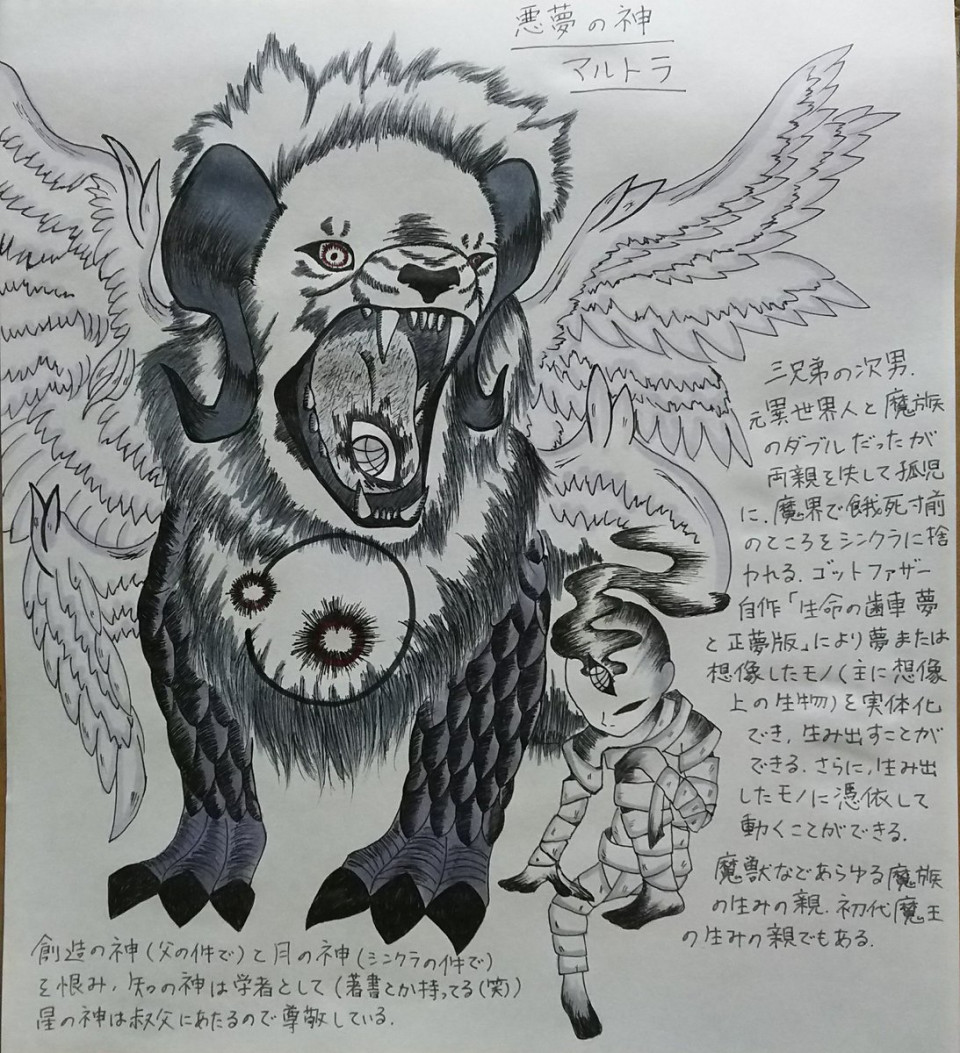 悪夢の神
マルトラ
三兄弟の次男.
元異世界人と魔族
のダブルだったが
両親を失して孤児
に.魔界で餓死寸前
のところをシンクラに捨
われる.ゴットファザー
自作「生命の歯車 夢
と正夢版」により夢または
想像したモノ(主に想像
上の生物)を実体化
でき,生み出すことが
できる.さらに,生み出
したモノに憑依して
動くことができる.
魔獣などあらゆる魔族
の生みの親.初代魔王
の生みの親でもある.
創造の神(父の件で)と月の神(シンクラの件で)
を恨み,知の神は学者として(著書とか持ってる(笑))
星の神は叔父にあたるので尊敬している.